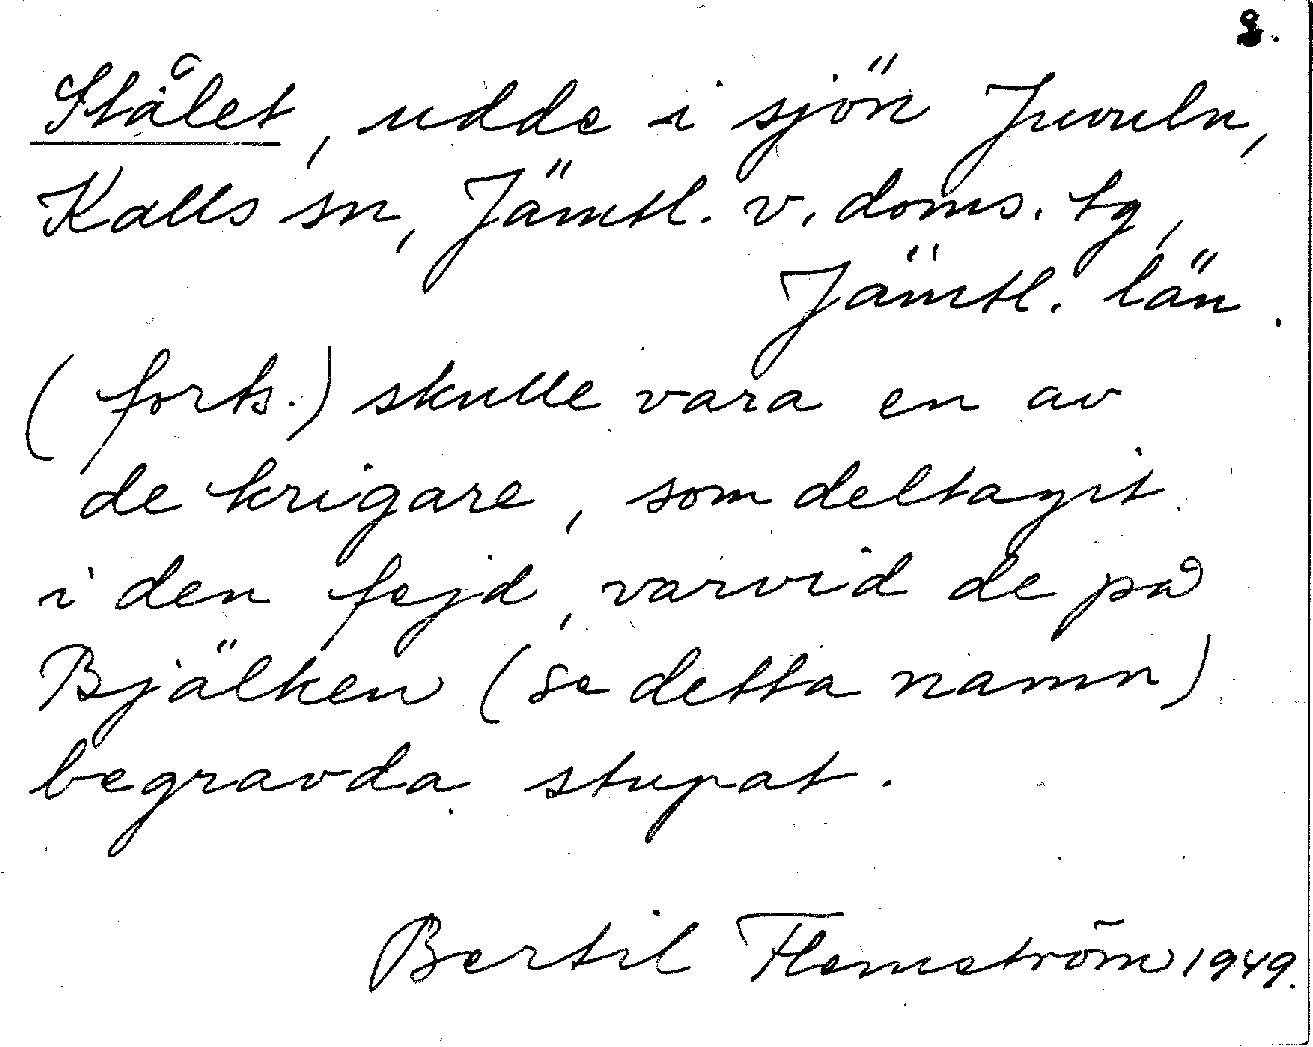 2.
Stålet, udde i sjön Juvuln,
Kalls sn, Jämtl. v. doms. tg,
Jämtl. län.
(forts.) skulle vara en av
de krigare, som deltagit
i den fejd, varvid de på
Bjälken (se detta namn)
begravda stupat.
Bertil Flemström 1949.